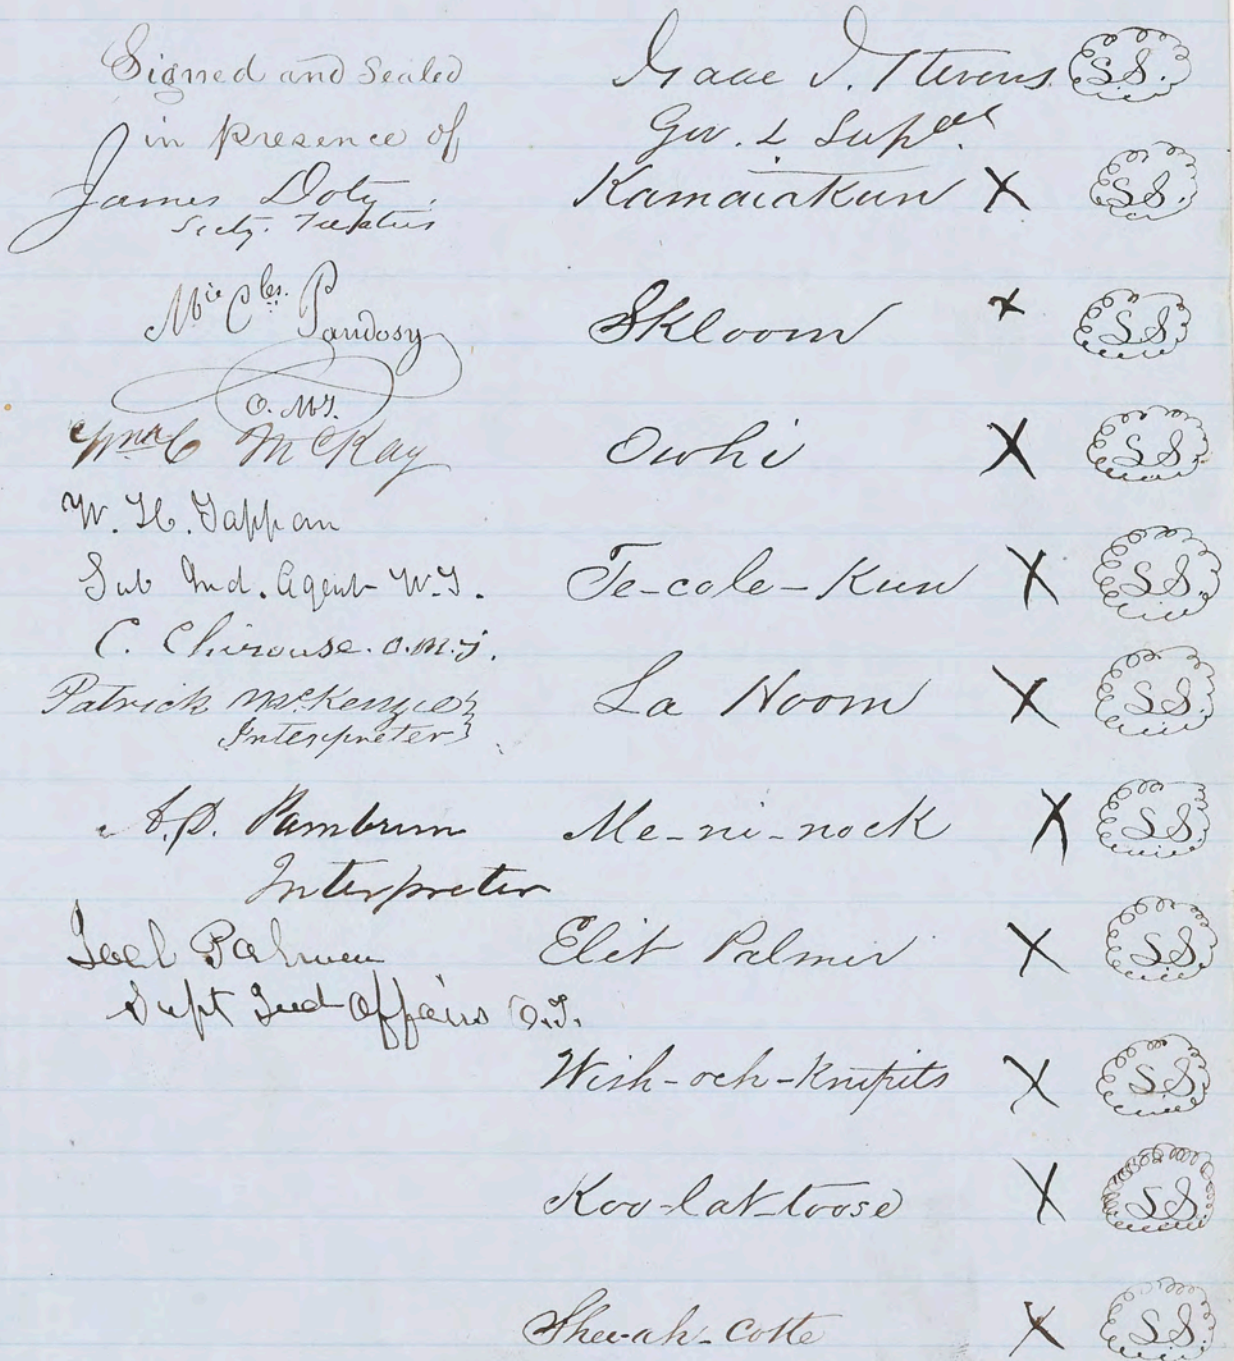 Signed and Sealed
in presence of
James Doty
Secty. Treaties
Mie Cles. Pandosy
O. M. I.
Wm. C McKay
W. H. Tappan
Sub Ind. Agent W. T.
C. Chirouse. O. M. I.
Patrick McKenzie
Interpreter
A. D. Pambrun
Interpreter
Joel Palmer
Supt Ind Affairs O. T.
Isaac I. Stevens. S.S.
Gov. & Supdt.
Kamaiakun X S.S.
Skloom X S.S.
Owhi X S.S.
Te-cole-Kun X S.S.
La Hoom X S.S.
Me-ni-nock X S.S.
Elit Palmer X S.S.
Wish-och-Knipits X S.S.
Koo-lat-toose X S.S.
Shee-ah-Cotte X S.S.